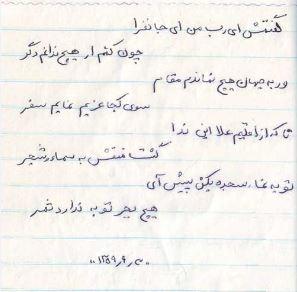 گفتش ای رب من ای جانفزا
چون کنم ار هیچ ندانم دگر
ور به جهان هیچ نماندم مقام
سوی کجا عزیم نمایم سفر
تا که از اقلیم علا این ندا
گشت به سما و شجر
توبه نما، سجده یکن پیش آی
هیچ بجز توبه ندارد ثمر
۱۳۵۹٫۶٫۳۰